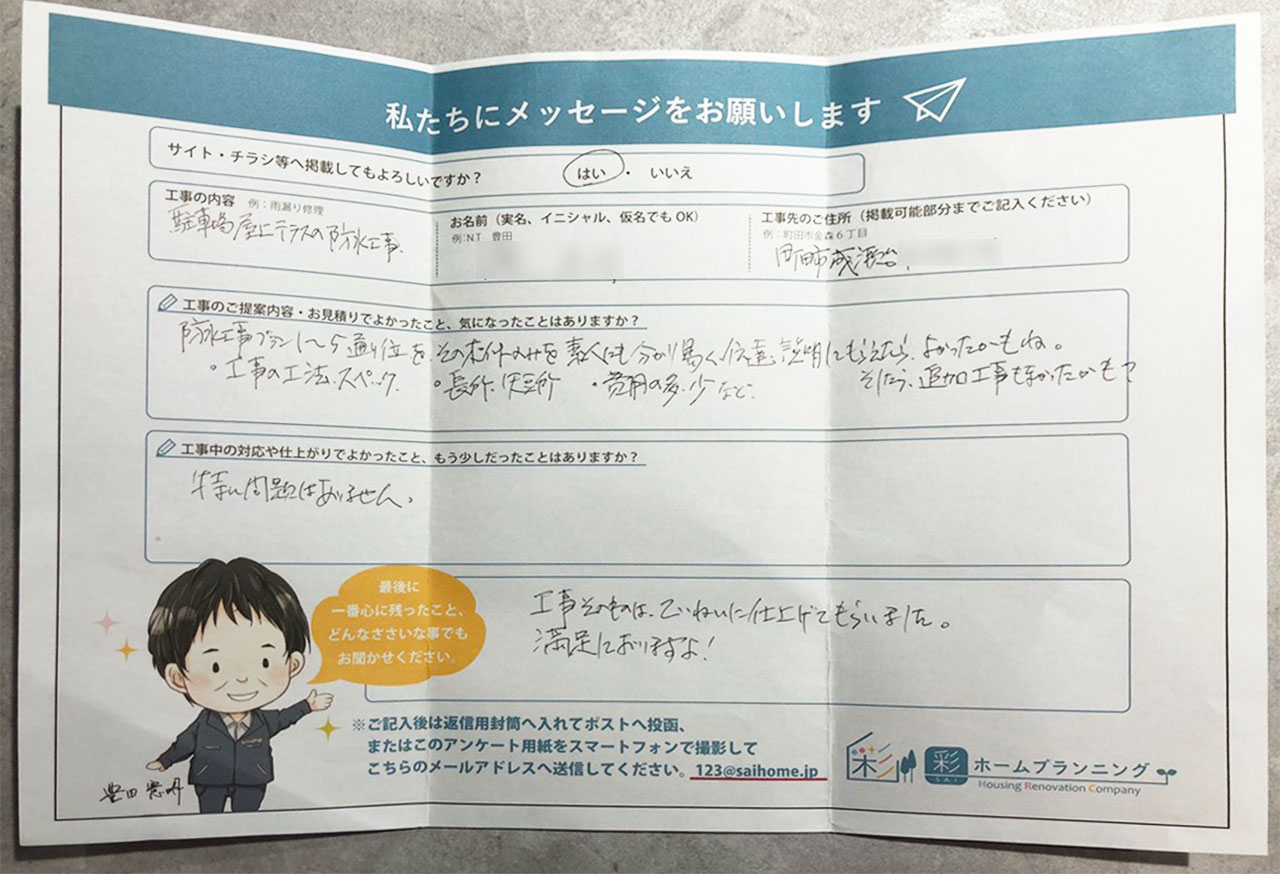 私たちにメッセージをお願いします
サイト・チラシ等へ掲載してもよろしいですか? はい ・ いいえ
工事の内容 例:雨漏り修理
駐車場屋上テラスの防水工事.
お名前(実名、イニシャル、仮名でもOK)
例:N.T 豊田
工事先のご住所(掲載可能部分までご記入ください)
例:町田市金森6丁目
町田市成瀬台.
工事のご提案内容・お見積りでよかったこと、気になったことはありますか?
防水工事プラン1〜5通り位を、その本件のみを素人にも分かり易く、伝達、説明してもらえたら、よかったかもね。
・工事の工法.スペック. ・長所.短所 ・費用の多.少など. そしたら、追加工事もなかったかも?
工事中の対応や仕上がりでよかったこと、もう少しだったことはありますか?
特に問題はありません。
最後に
一番心に残ったこと、
どんなささいな事でも
お聞かせください。
工事そのものは、ていねいに仕上げてもらいました。
満足しておりますよ!
※ご記入後は返信用封筒へ入れてポストへ投函、
またはこのアンケート用紙をスマートフォンで撮影して
こちらのメールアドレスへ送信してください。123@saihome.jp
彩 SAI ホームプランニング
Housing Renovation Company
豊田